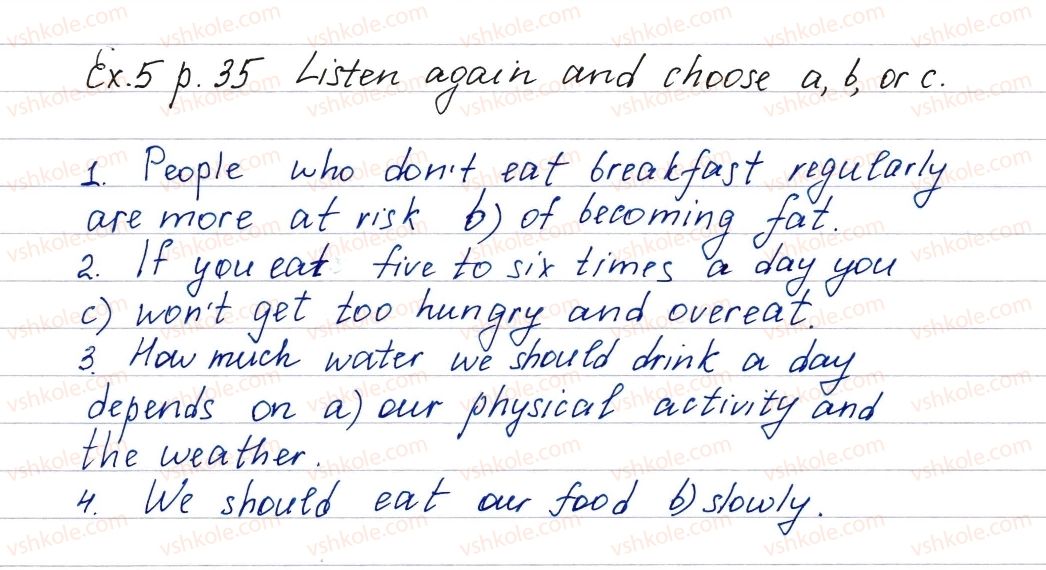 Ex.5 p. 35 Listen again and choose a, b, or c.
1. People who don't eat breakfast regularly
are more at risk b) of becoming fat.
2. If you eat five to six times a day you
c) won't get too hungry and overeat.
3. How much water we should drink a day
depends on a) our physical activity and
the weather.
4. We should eat our food b) slowly.